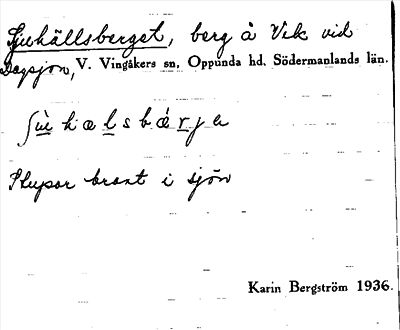 Sjuhällsberget, berg å Vik vid
Dagsjön, V. Vingåkers sn, Oppunda hd, Södermanlands län.
ʃu̇̀hælsbǽrjə
Stupar brant i sjön
Karin Bergström 1936.